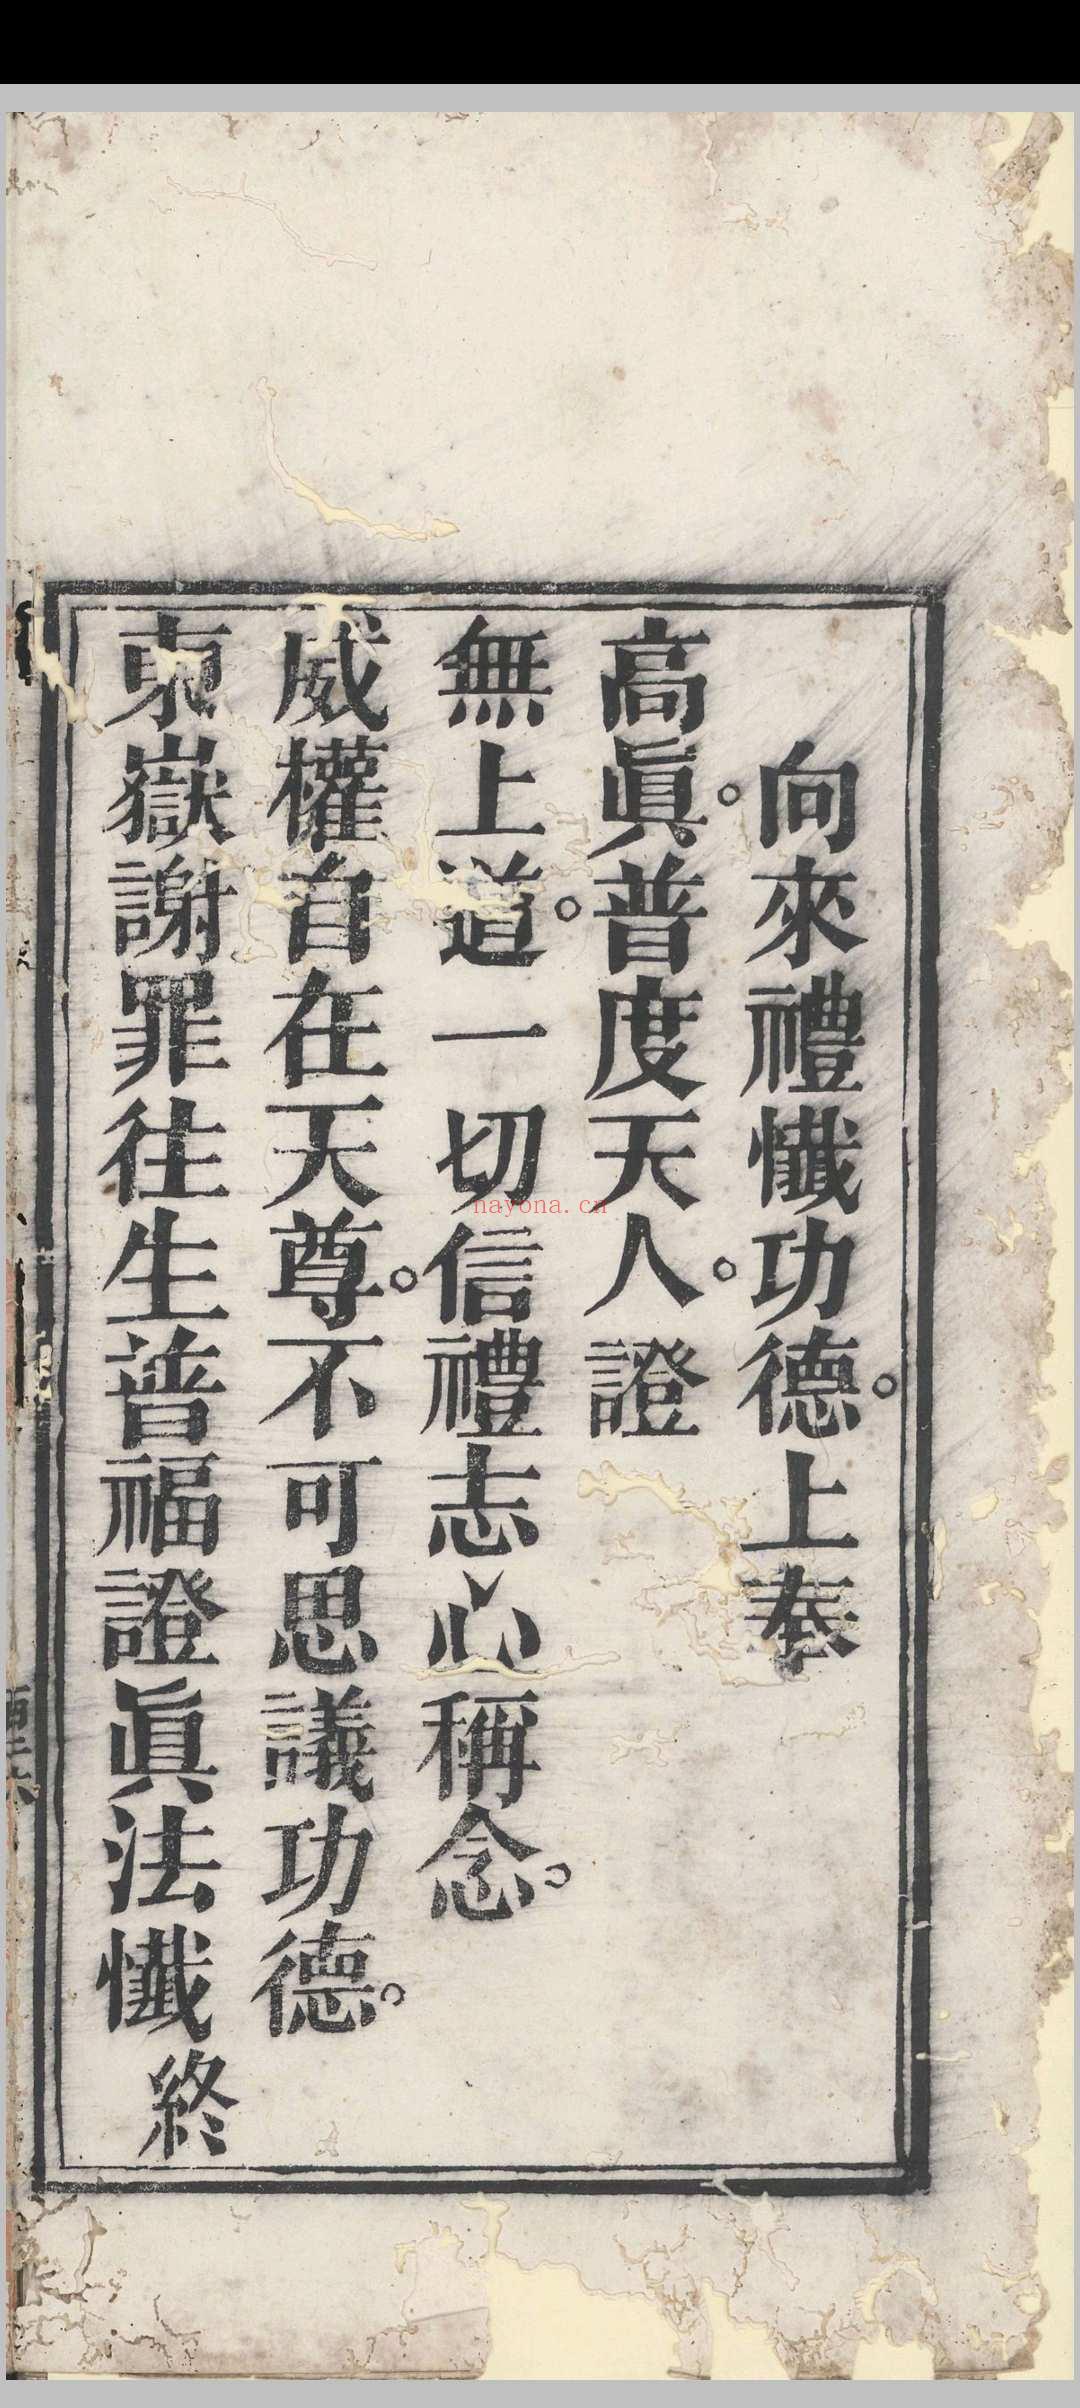 向來禮懺功德。上奉
高眞。普度天人。證
無上道。一切信禮志心稱念。
威權自在天尊。不可思議功德。
東嶽謝罪往生普福證眞法懺終
nayona.cn